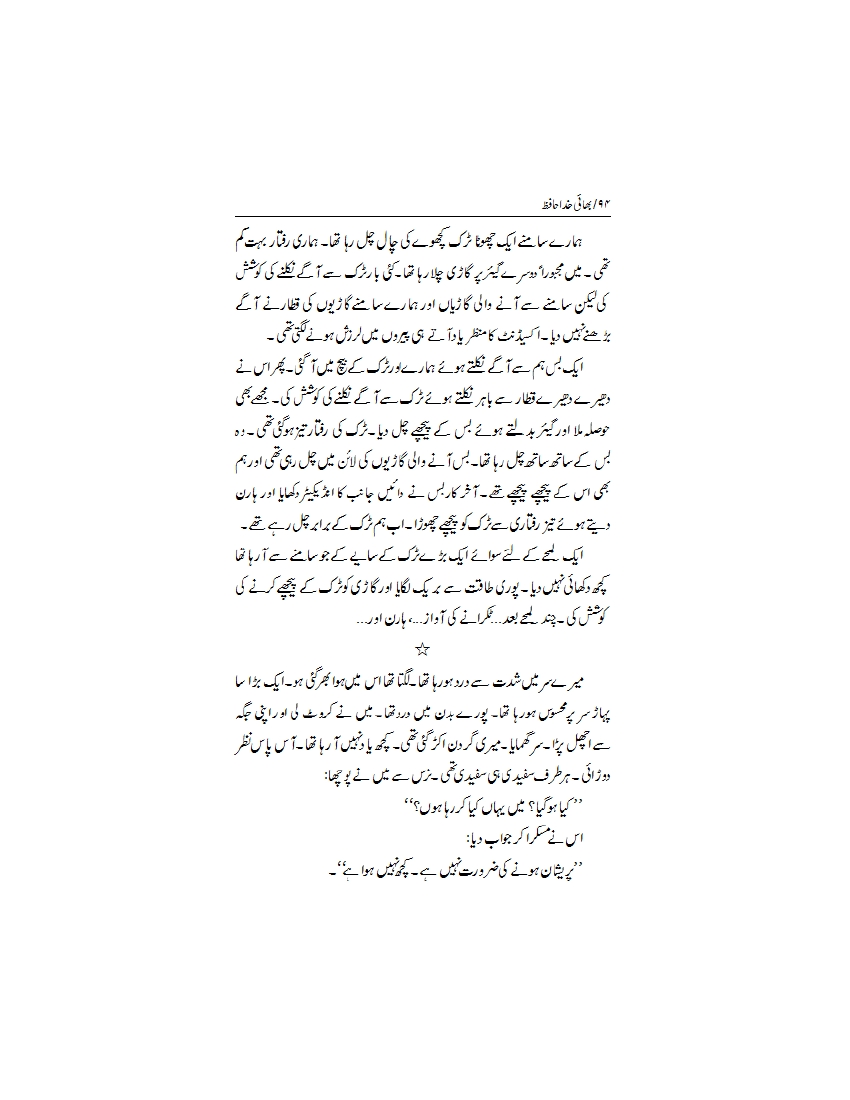 ۹۴/بھائی خدا حافظ
ہمارے سامنے ایک چھوٹا ٹرک کچھوے کی چال چل رہا تھا۔ ہماری رفتار بہت کم
تھی۔ میں مجبوراً دوسرے گیئر پر گاڑی چلا رہا تھا۔ کئی بار ٹرک سے آگے نکلنے کی کوشش
کی لیکن سامنے سے آنے والی گاڑیاں اور ہمارے سامنے گاڑیوں کی قطار نے آگے
بڑھنے نہیں دیا۔ اکسیڈنٹ کا منظر یاد آتے ہی پیروں میں لرزش ہونے لگتی تھی۔
ایک بس ہم سے آگے نکلتے ہوئے ہمارے اور ٹرک کے بیچ میں آ گئی۔ پھر اس نے
دھیرے دھیرے قطار سے باہر نکلتے ہوئے ٹرک سے آگے نکلنے کی کوشش کی۔ مجھے بھی
حوصلہ ملا اور گیئر بدلتے ہوئے بس کے پیچھے چل دیا۔ ٹرک کی رفتار تیز ہو گئی تھی۔ وہ
بس کے ساتھ ساتھ چل رہا تھا۔ بس آنے والی گاڑیوں کی لائن میں چل رہی تھی اور ہم
بھی اس کے پیچھے پیچھے تھے۔ آخر کار بس نے دائیں جانب کا انڈیکیٹر دکھایا اور ہارن
دیتے ہوئے تیز رفتاری سے ٹرک کو پیچھے چھوڑا۔ اب ہم ٹرک کے برابر چل رہے تھے۔
ایک لمحے کے لئے سوائے ایک بڑے ٹرک کے سایے کے جو سامنے سے آ رہا تھا
کچھ دکھائی نہیں دیا۔ پوری طاقت سے بریک لگایا اور گاڑی کو ٹرک کے پیچھے کرنے کی
کوشش کی۔ چند لمحے بعد... ٹکرانے کی آواز...، ہارن اور...
☆
میرے سر میں شدت سے درد ہو رہا تھا۔ لگتا تھا اس میں ہوا بھر گئی ہو۔ ایک بڑا سا
پہاڑ سر پر محسوس ہو رہا تھا۔ پورے بدن میں درد تھا۔ میں نے کروٹ لی اور اپنی جگہ
سے اچھل پڑا۔ سر گھمایا۔ میری گردن اکڑ گئی تھی۔ کچھ یاد نہیں آ رہا تھا۔ آس پاس نظر
دوڑائی۔ ہر طرف سفیدی ہی سفیدی تھی۔ نرس سے میں نے پوچھا:
’’کیا ہو گیا؟ میں یہاں کیا کر رہا ہوں؟‘‘
اس نے مسکرا کر جواب دیا:
’’پریشان ہونے کی ضرورت نہیں ہے۔ کچھ نہیں ہوا ہے‘‘۔